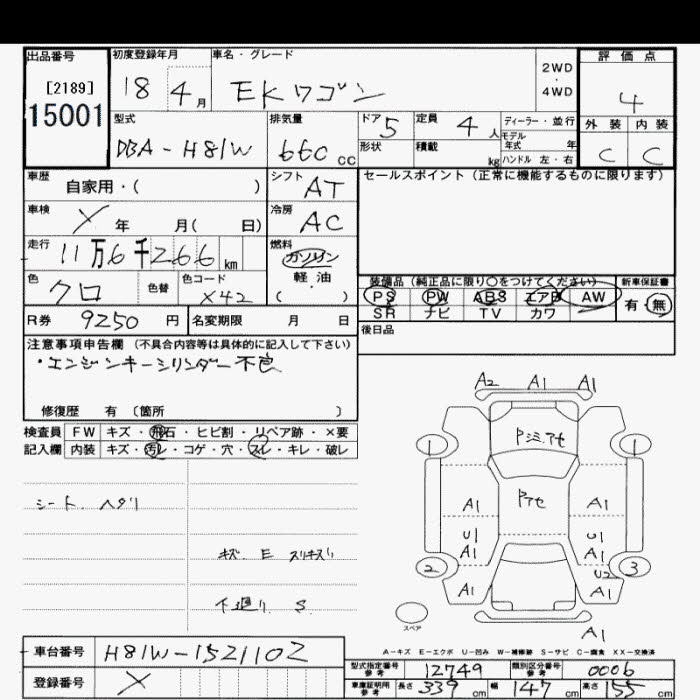 出品番号 初度登録年月 車名・グレード 評価点
[2189] 18 4月 EKワゴン 2WD・4WD 4
15001
型式 排気量 ドア 定員 ディーラー・並行 外装 内装
DBA-H81W 660 CC 5 4人 モデル年式 年 C C
形状 積載 kg ハンドル 左・右
車歴 自家用・( ) シフト AT セールスポイント(正常に機能するものに限ります)
車検 X 年 月( 日) 冷房 AC
走行 11万6千266 km 燃料 ガソリン
軽油
( )
色 クロ 色替 色コード X42
装備品(純正品に限り○をつけてください) 新車保証書
PS PW ABS エアB AW 有・無
SR ナビ TV カワ
R券 9250円 名変期限 月 日 後日品
注意事項申告欄(不具合内容等は具体的に記入して下さい)
・エンジンキーシリンダー不良
修復歴 有 〔箇所 〕
検査員 FW キズ・飛石・ヒビ割・リペア跡・×要
記入欄 内装 キズ・汚レ・コゲ・穴・スレ・キレ・破レ
A2 A1 A1
1 1
Pアセ
A1 A1
U1 U1
A1 A1
2 U2 3
A1 A1
A1
スペア
シート ヘタリ
キズ E スリキズ
下廻り S
A-キズ E-エクボ U-凹み W-補修跡 S-サビ C-腐食 XX-交換済
車台番号 H81W-1521102
登録番号 X
型式指定番号参考 12749 類別区分番号参考 0006
車庫証明用参考 長さ 339cm 幅 147cm 高さ 155cm